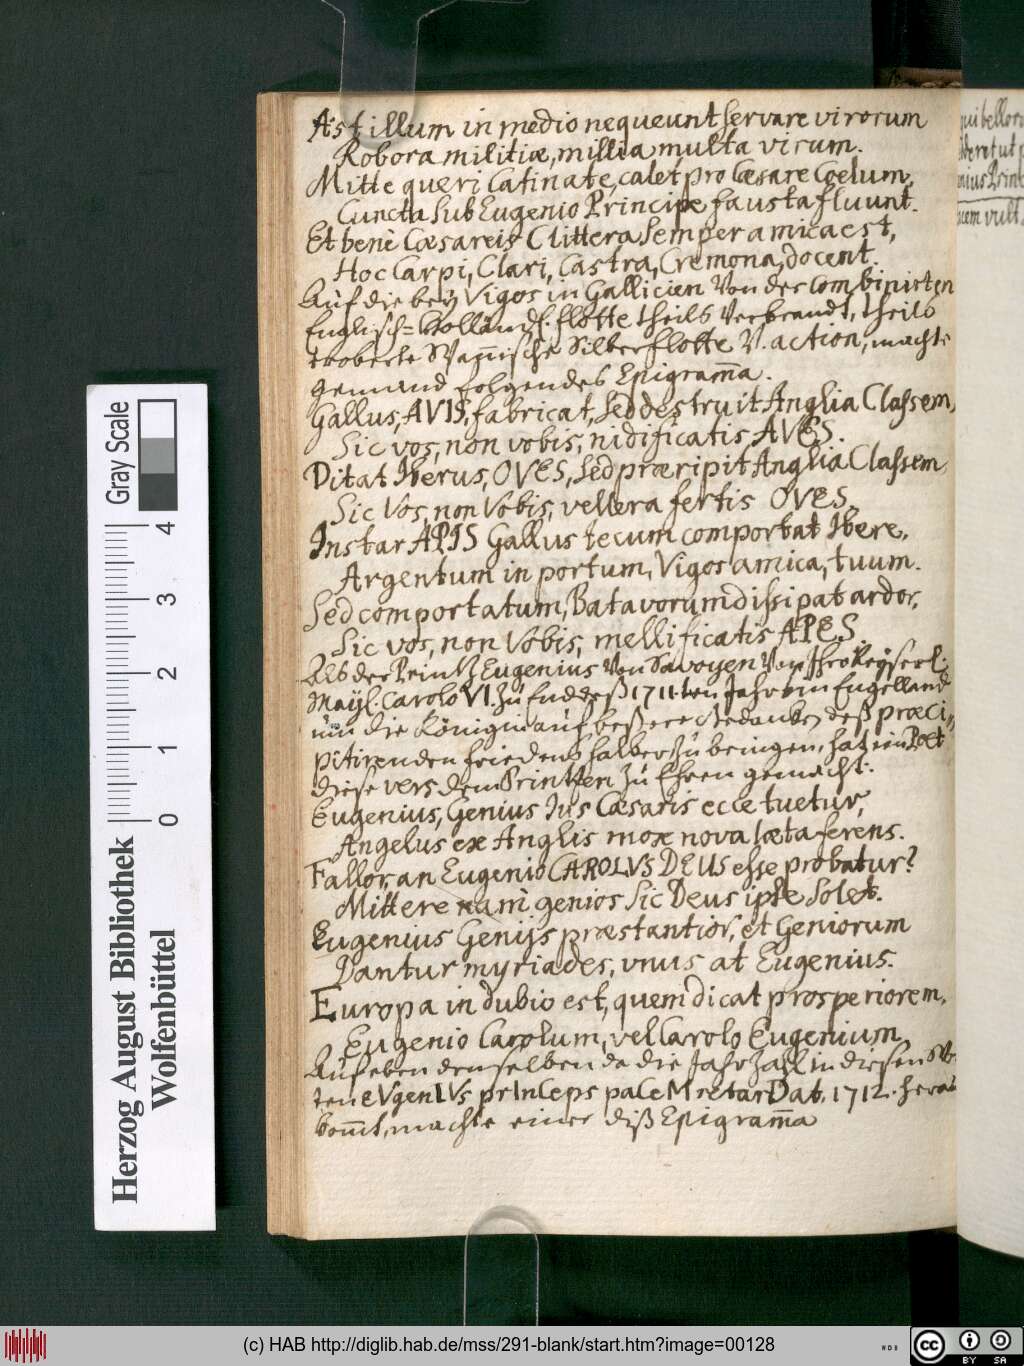 Ast illum in medio nequeunt servare virorum
Robora militiæ, millia multa virum.
Mitte queri Catinate, calet pro Cæsare Coelum,
Cuncta sub Eugenio Principe fausta fluunt.
Et benè Cæsareis C littera semper amica est,
Hoc Carpi, Clari, Castra, Cremona, docent.
Auf die beÿ Vigos in Gallicien von der Combinirten
Englisch= Holländ. flotte theils Verbrandt, theils
eroberte Spañische Silberflotte V. action, machte
Jemand folgendes Epigram̃a.
Gallus, AVIS, fabricat, sed destruit Anglia Classem,
Sic vos, non vobis, nidificatis AVES.
Ditat Iberus, OVES, sed præripit Anglia Classem
Sic Vos, non Vobis, vellera fertis OVES.
Instar APIS Gallus tecum comportat Ibere,
Argentum in portum, Vigos amica, tuum.
Sed comportatum, Batavorum dissipat ardor,
Sic vos, non Vobis, mellificatis APES.
Als der Printz Eugenius von Savoyen von Ihro Keÿserl.
Maÿt. Carolo VI. zu End deß 1711.ten Jahr in Engelland
um die Königin auf beßere Gedancken deß præci-
pitirenden friedens halber zu bringen, hat ein Poet
diese vers dem Printzen zu Ehren gemacht:
Eugenius, Genius Ius Cæsaris ecce tuetur,
Angelus ex Anglis mox nova læta ferens.
Fallor, an Eugenio CAROLVS DEUS esse probatur?
Mittere nam genios sic Deus ipse solet.
Eugenius Genijs præstantior, et Geniorum
Dantur myriades, vnus at Eugenius.
Europa in dubio est, quem dicat prosperiorem,
Eugenio Carolum, vel Carolo Eugenium
Auf eben denselben da die Jahrzahl in diesen
ten eVgenIVs prInCeps paCe M retarDat. 1712. heraus
kom̃t, machte einer diß Epigram̃a
Gray Scale
0 1 2 3 4
Herzog August Bibliothek
Wolfenbüttel
(c) HAB http://diglib.hab.de/mss/291-blank/start.htm?image=00128
WDB
cc BY SA